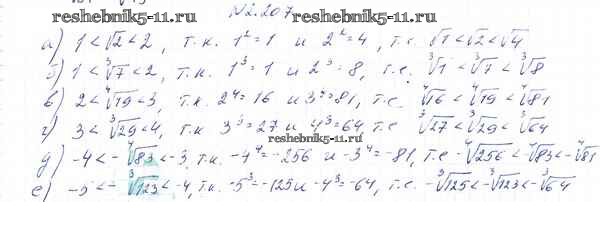 reshebnik5-11.ru reshebnik5-11.ru
N2.207
а) 1 < √2 < 2, т.к. 1² = 1 и 2² = 4, т.е. √1 < √2 < √4
б) 1 < ³√7 < 2, т.к. 1³ = 1 и 2³ = 8, т.е. ³√1 < ³√7 < ³√8
в) 2 < ⁴√19 < 3, т.к. 2⁴ = 16 и 3⁴ = 81, т.е. ⁴√16 < ⁴√19 < ⁴√81
г) 3 < ³√29 < 4, т.к 3³ = 27 и 4³ = 64, т.е. ³√27 < ³√29 < ³√64
д) -4 < -⁴√83 < -3, т.к. -4⁴ = -256 и -3⁴ = -81, т.е -⁴√256 < -⁴√83 < -⁴√81
е) -5 < -³√123 < -4, т.к. -5³ = -125 и -4³ = -64, т.е. -³√125 < -³√123 < -³√64